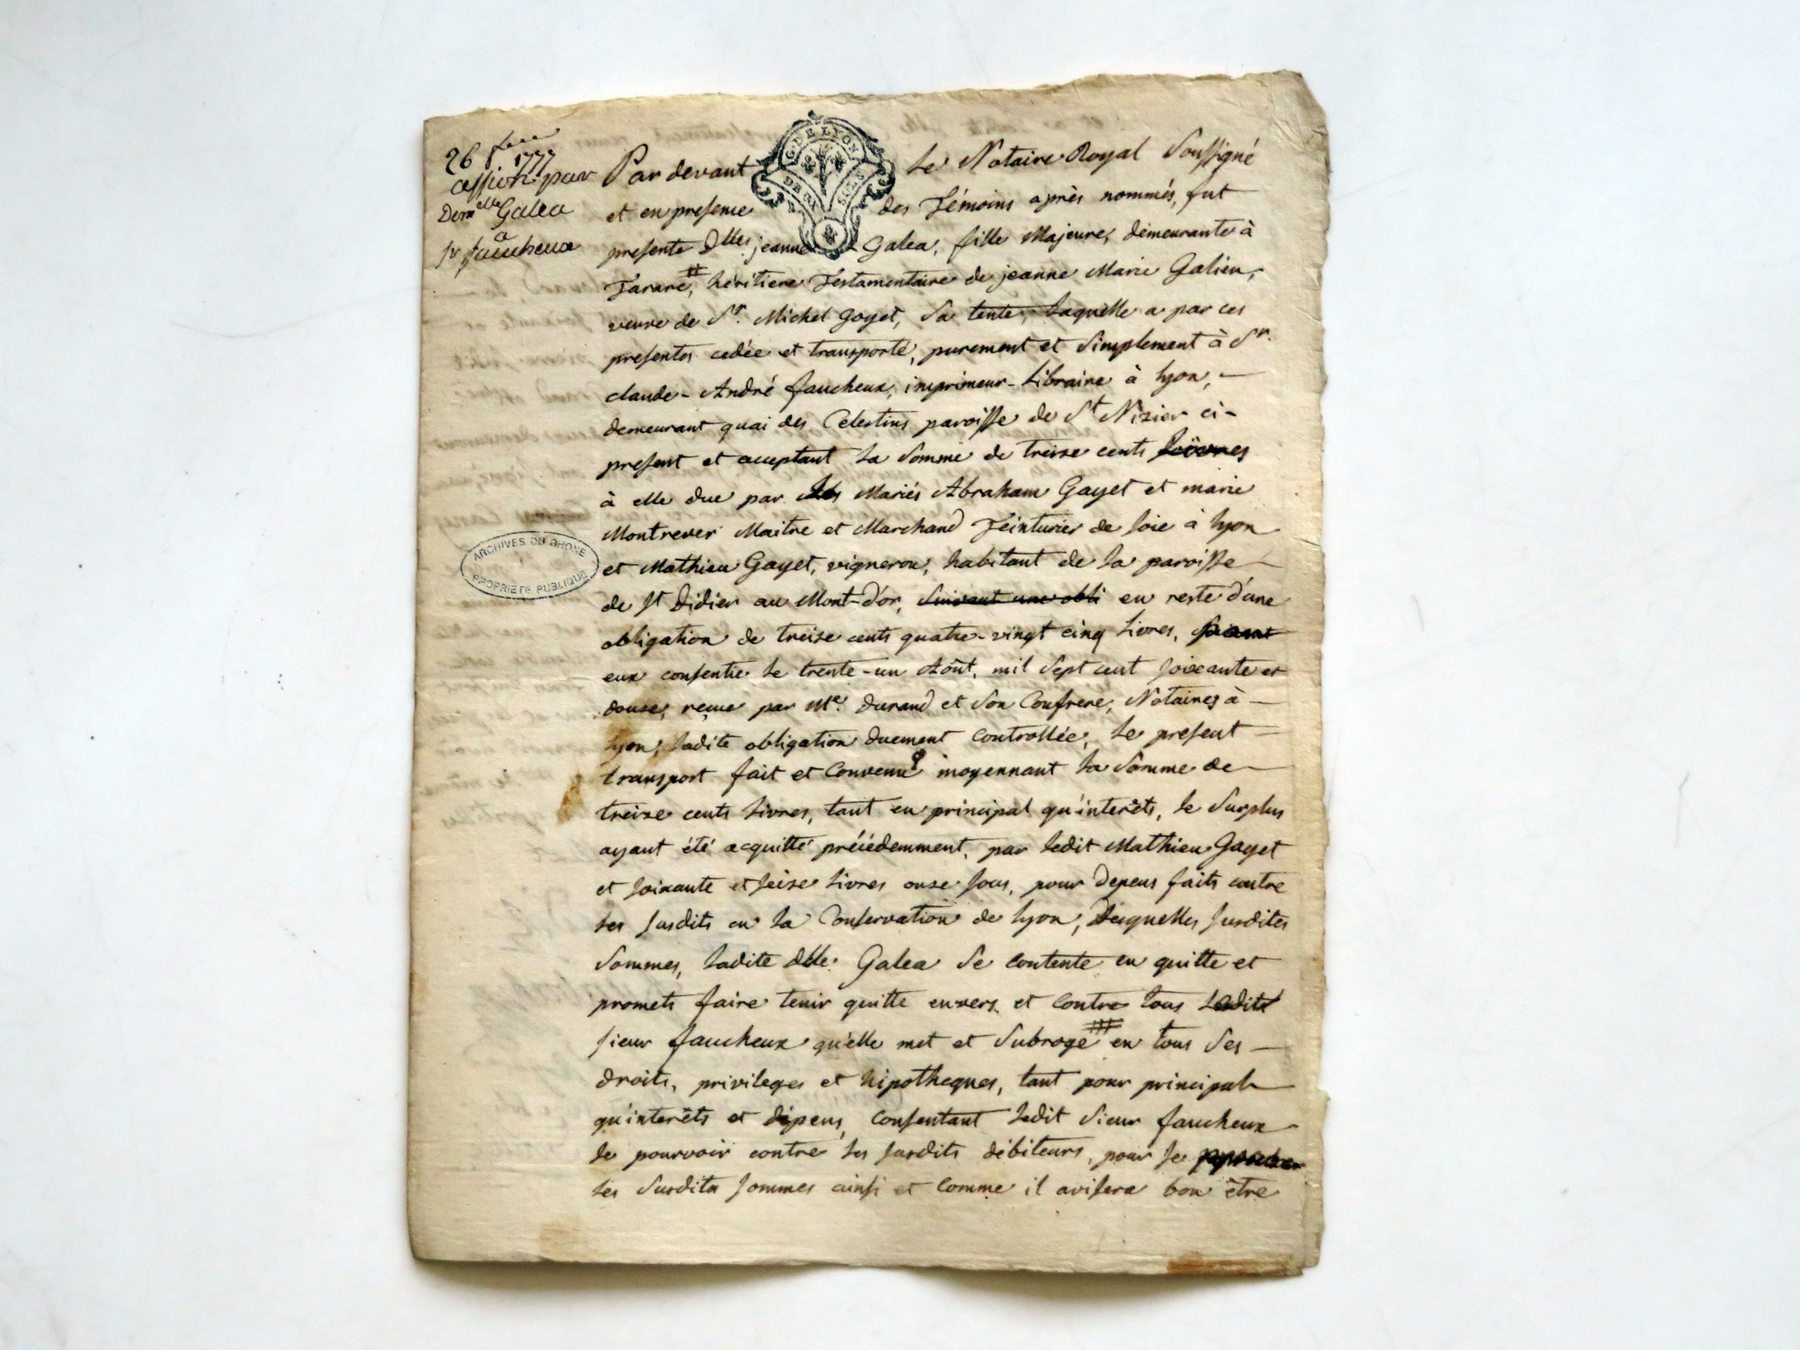 26 1777
cession par
Demelle Galea
à
Sr faucheux
G. DE LYON
DEUX SOLS
ARCHIVES DU RHONE
PROPRIETE PUBLIQUE
Par devant Le Notaire Royal Soussigné
et en presence des Témoins après nommés, fut
presente Dlle jeanne Galea, fille Majeure, demeurante à
Tarare #, héritiere Testamentaire de jeanne Marie Galien,
veuve de Sr. Michel goyet, Sa tente, Laquelle a par ces
presentes cedée et transporté, purement et Simplement à Sr.
claude-André faucheux, imprimeur-Libraire à lyon,
demeurant quai des Celestins paroisse de St Nizier ci-
present et acceptant La Somme de treize cents Livres
à elle due par Les Mariés Abraham Gayet et marie
Montrever Maitre et Marchand Teinturier de soie à lyon
et Mathieu Gayet, vigneron, habitant de La paroisse
de St Didier au Mont-d'or, Suivant une obli en reste d'une
obligation de treize cents quatre-vingt cinq Livres,
eux consentie Le trente-un Août, mil Sept cent soixante et
douze, reçue par Me. Durand et Son Confrere, Notaires à
lyon, Ladite obligation duement Controllée, Le present
transport fait et Convenu moyennant La Somme de
treize cents Livres, tant en principal qu'interêts, le Surplus
ayant été acquitté précédemment, par Ledit Mathieu Gayet
et soixante et seize Livres onze sous, pour Depens faits contre
Les susdits en La Conservation de lyon, Desquelles susdites
Sommes, Ladite dlle. Galea Se Contente en quitte et
promets faire tenir quitte envers et Contre tous Ledit
sieur faucheux qu'elle met et Subroge # en tous Ses
droits, privileges et hipotheques, tant pour principal
qu'interêts et dépens, Consentant Ledit Sieur faucheux
Se pourvoir contre Les susdits débiteurs, pour Se
Les Susdites sommes ainsi et Comme il avisera bon être